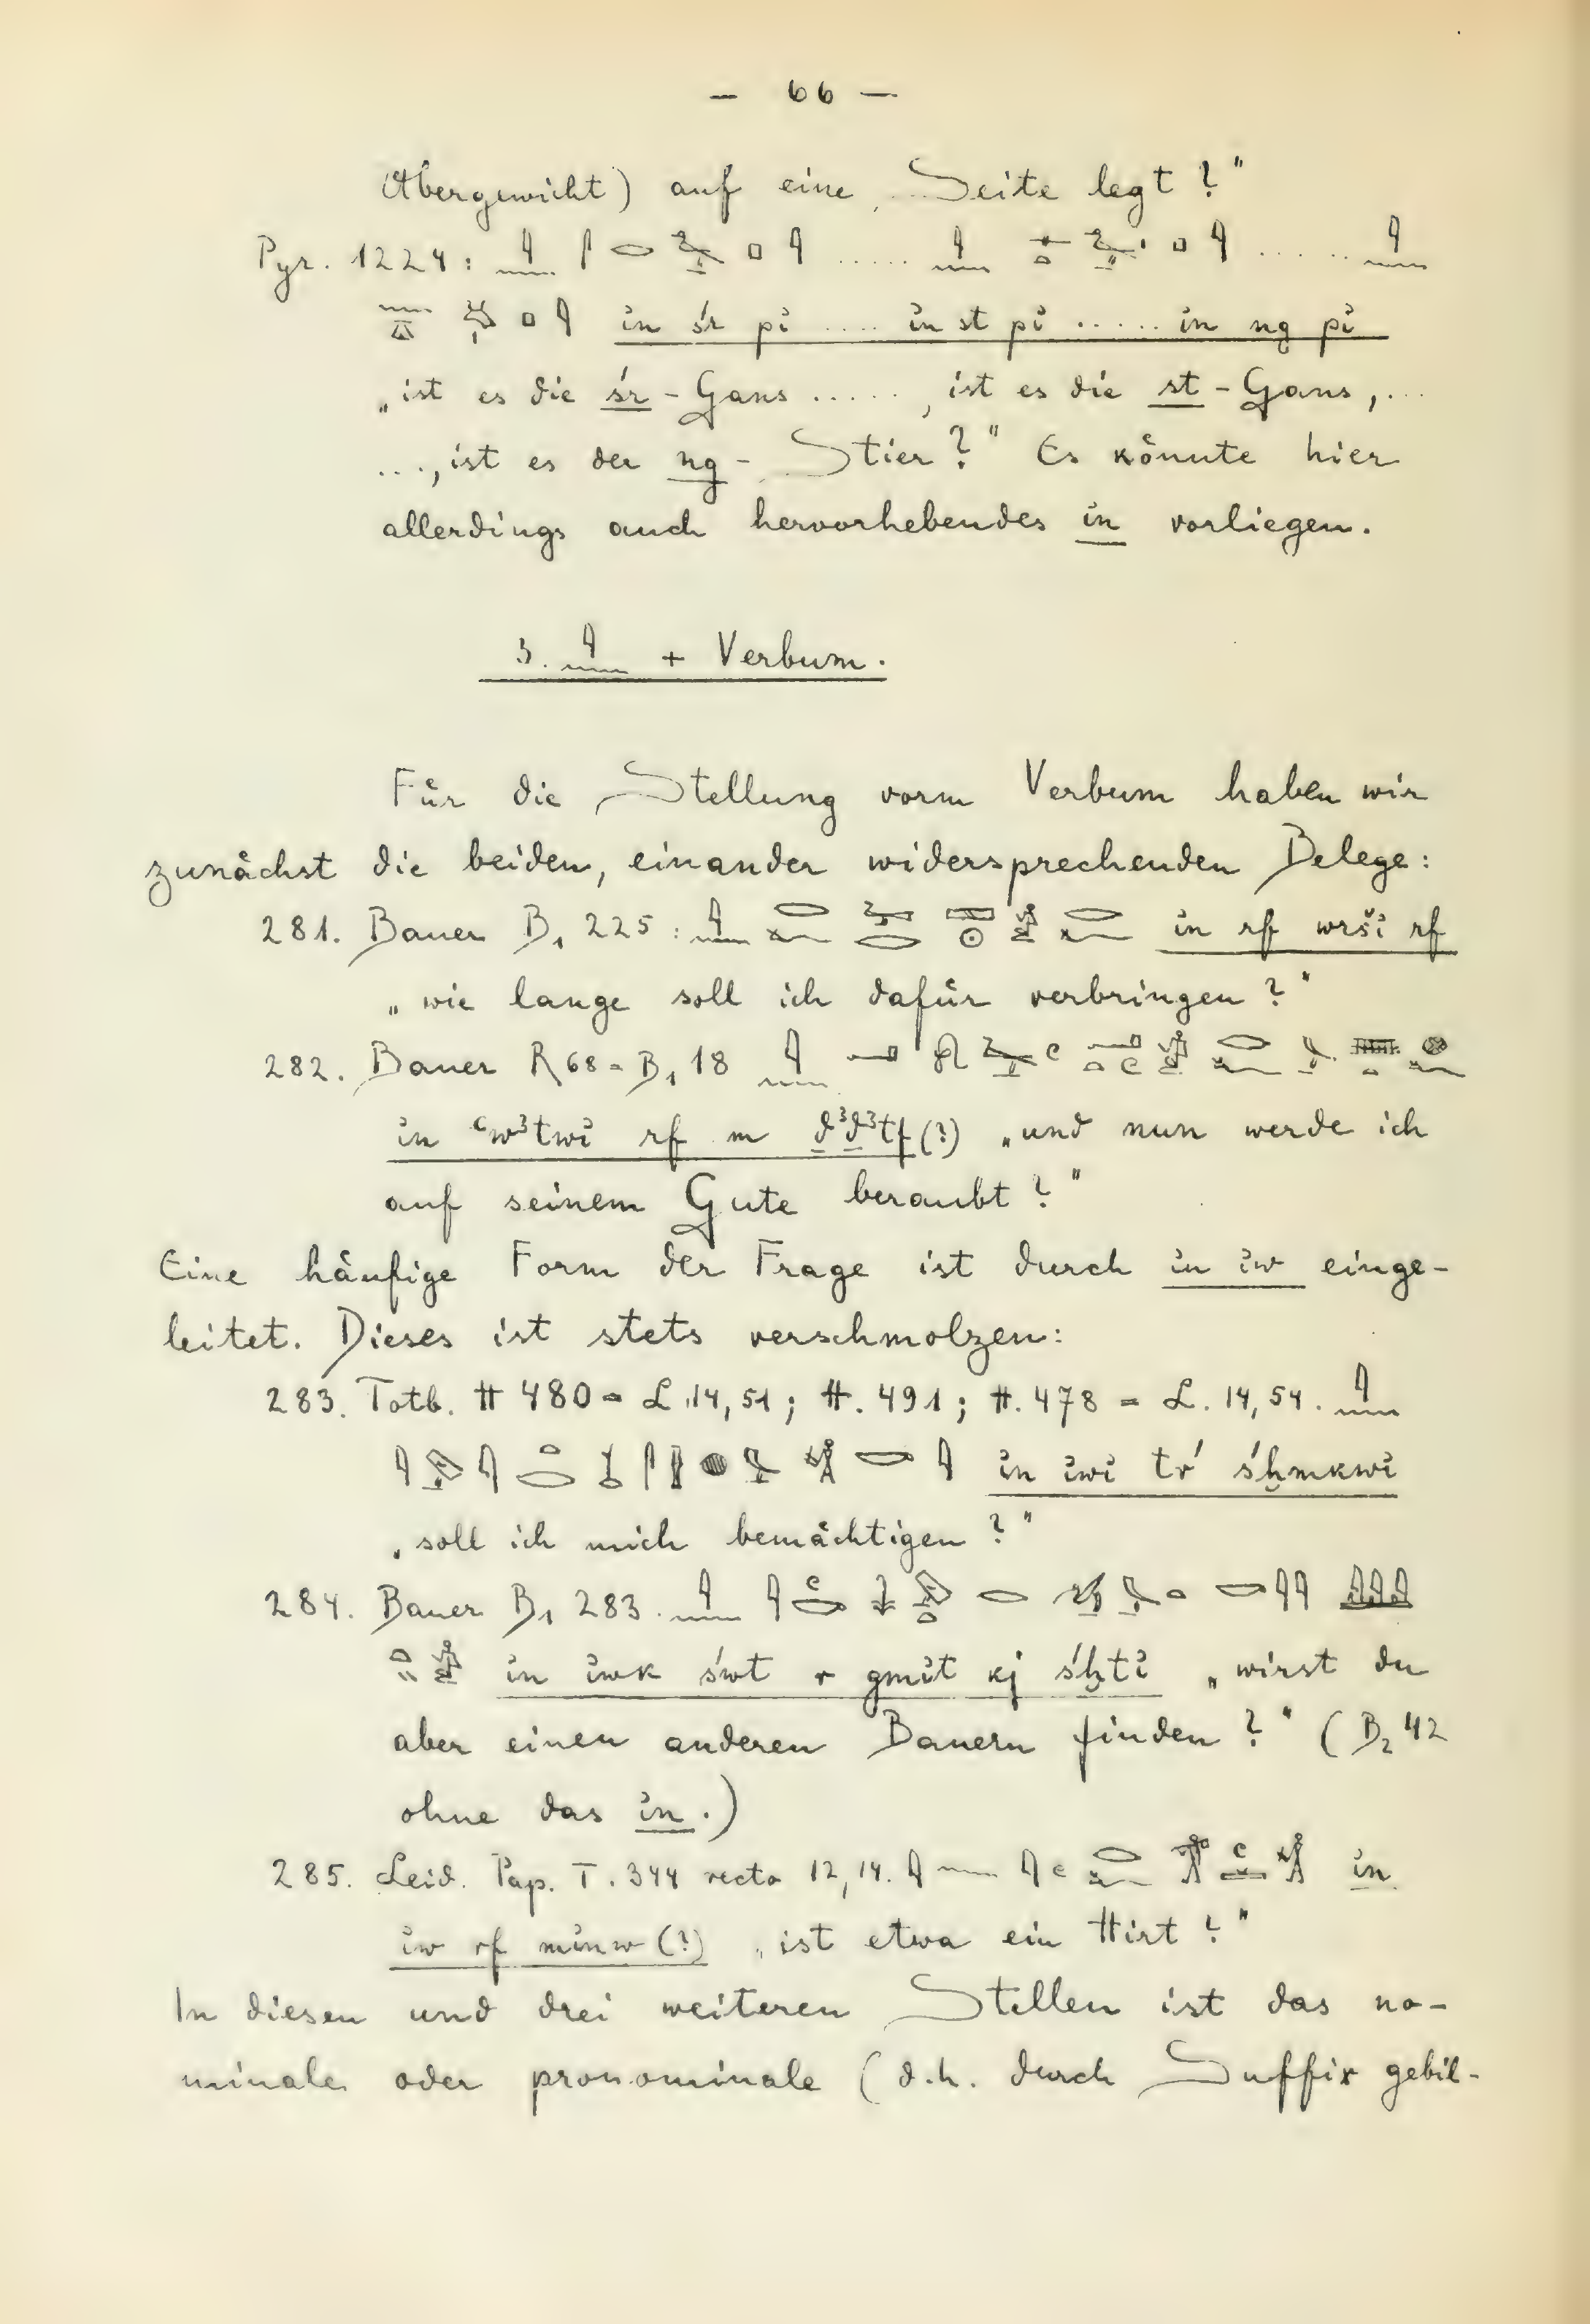 — 66 —
Übergewicht) auf eine Seite legt?"
Pyr. 1224: 𓇋𓈖 𓋴𓂋𓅭𓊪𓇋 ..... 𓇋𓈖 𓊃𓏏𓅭𓊪𓇋 ...... 𓇋𓈖
𓈖𓎼 𓊪𓇋 in śr pi .... in st pi ...... in ng pi
„ist es die śr-Gans ....., ist es die st-Gans, ...
..., ist es der ng-Stier?" Es könnte hier
allerdings auch hervorhebendes in vorliegen.
3. 𓇋𓈖 + Verbum.
Für die Stellung vorm Verbum haben wir
zunächst die beiden, einander widersprechenden Belege:
281. Bauer B₁ 225: 𓇋𓈖𓂋𓆑𓅨𓂋𓈙𓇳𓀀𓂋𓆑 in rf wrši rf
„wie lange soll ich dafür verbringen?"
282. Bauer R 68 = B₁ 18 𓇋𓈖
in ꜥwꜣtwi rf m ḏꜣḏꜣtf(?) „und nun werde ich
auf seinem Gute beraubt?"
Eine häufige Form der Frage ist durch in iw einge-
leitet. Dieses ist stets verschmolzen:
283. Totb. H 480 = L. 14,51; H. 491; H. 478 = L. 14,54. 𓇋𓈖
in iwi tŕ śḫmkwi
„soll ich mich bemächtigen?"
284. Bauer B₁ 283. 𓇋𓈖
in iwk śwt r gmit kj śḫti „wirst du
aber einen anderen Bauern finden?" (B₂ 42
ohne das in.)
285. Leid. Pap. T. 344 recto 12,14. 𓇋𓈖𓇋𓏲𓂋𓆑 in
iw rf minw(?) „ist etwa ein Hirt?"
In diesen und drei weiteren Stellen ist das no-
minale oder pronominale (d.h. durch Suffix gebil-